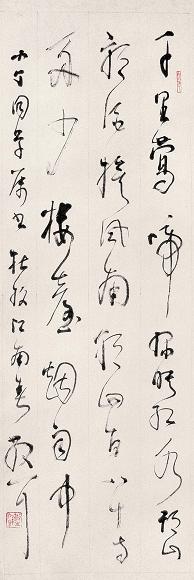 千里鶯啼綠映紅水邨山
郭酒旗風南朝四百八十寺
多少樓臺煙雨中
同學屬書杜牧江南春散耳